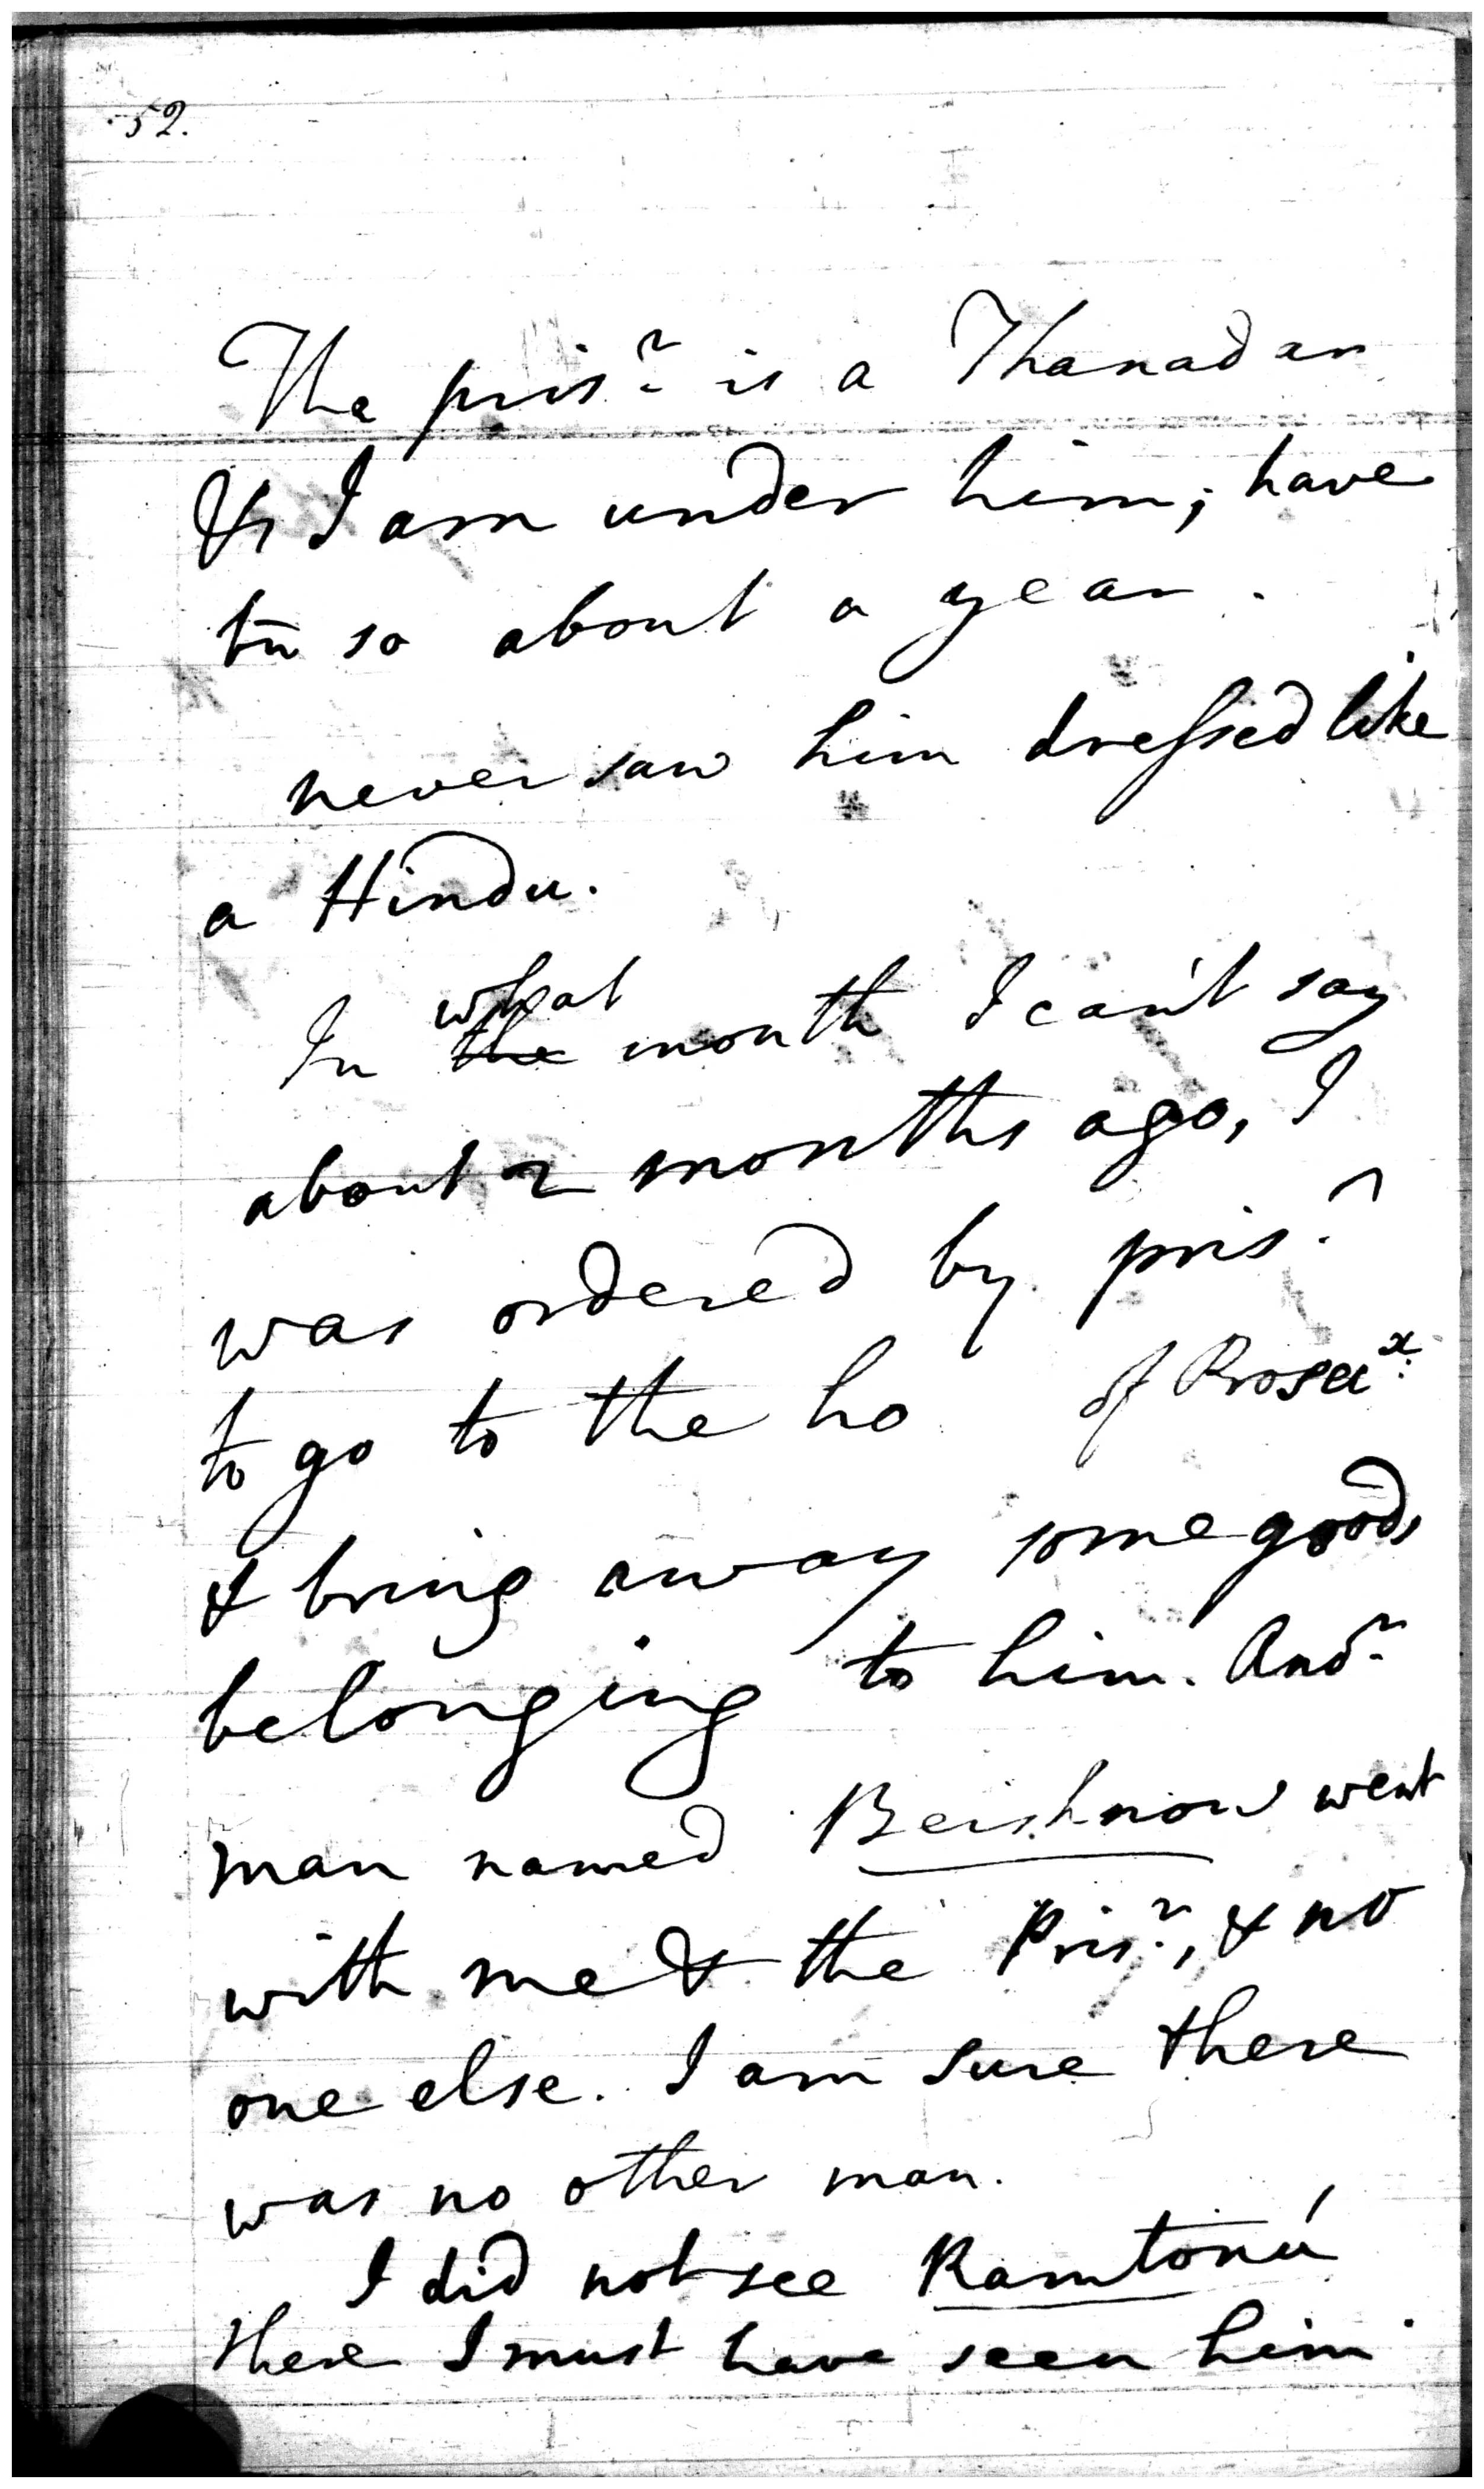 52.
The pris.r is a Thanadar
& I am under him; have
bn so about a year.
never saw him dressed like
a Hindu.
what
In the month I can't say
about 2 months ago, I
was ordered by pris.r
to go to the ho of Prosec.x
& bring away some goods
belonging to him. Ano.r
man named Beishnow went
with me & the Pris.r, & no
one else. I am sure there
was no other man.
I did not see Ramtonú
there I must have seen him